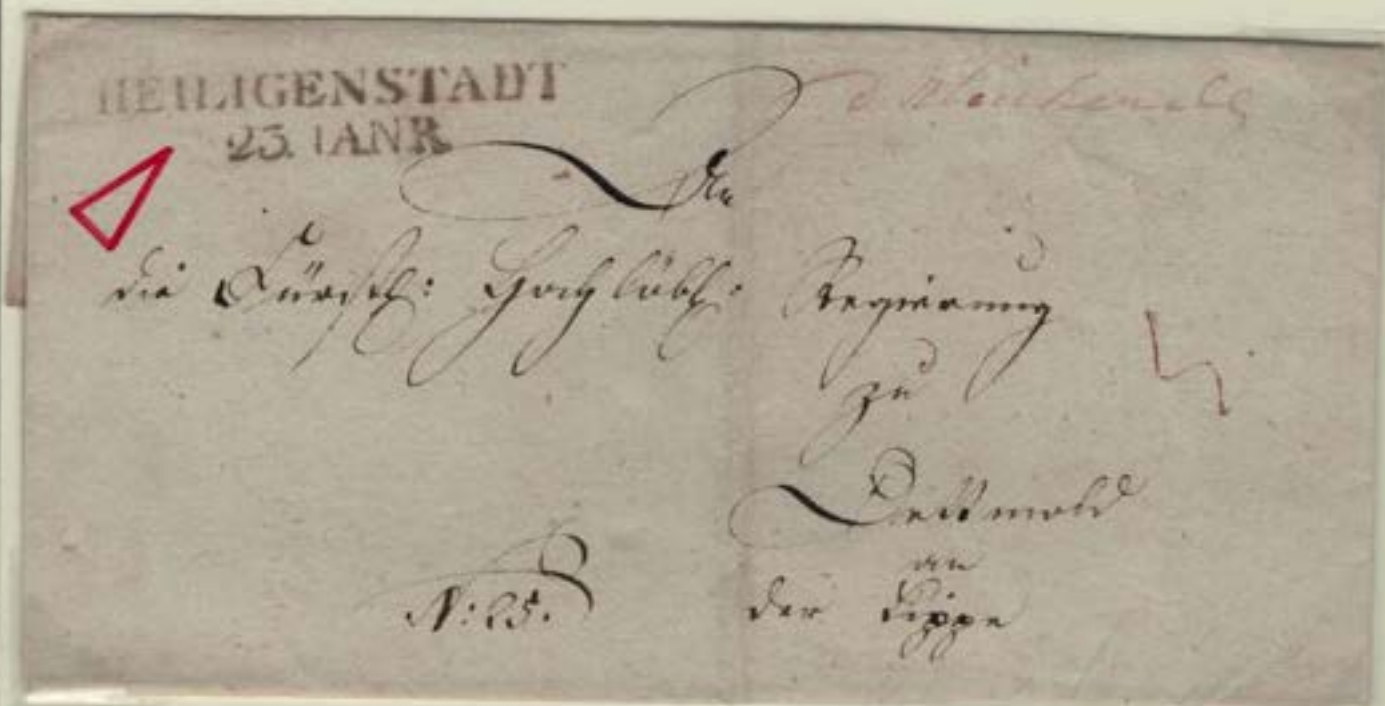 HEILIGENSTADT
23. IANR
An
die Fürstl: Hochlöbl: Regierung
zu
Dettmold
an
der Lippe
N: 25.